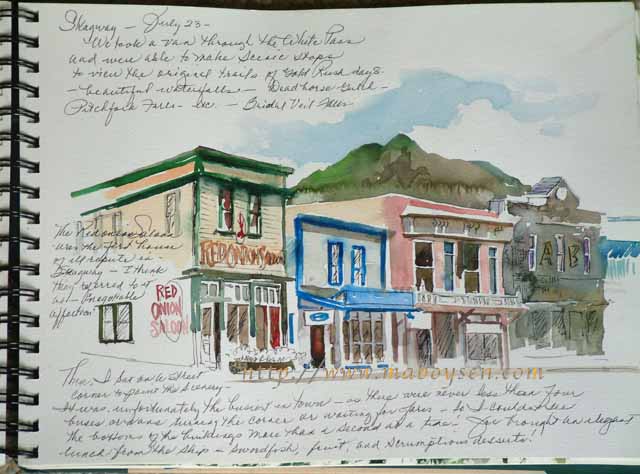 Skagway - July 23 -
We took a van through the White Pass
and were able to make scenic stops
to view the original trails of Gold Rush days
- beautiful waterfalls - Deadhorse Gulch -
Pitchfork Falls - etc. - Bridal Veil Falls
The Red Onion Saloon
was the first house
of ill repute in
Skagway - I think
they referred to it
as - negotiable
affection.
RED ONION SALOON
RED
ONION
SALOON
AB
Then, I sat on street
corner to paint the scenery -
http://www.maboysen.com
It was, unfortunately the busiest in town - as there were never less than four
buses or vans turning the corner or waiting for fares - so I couldn't see
the bottoms of the buildings more than a second at a time. Jay brought an elegant
lunch from the ship - swordfish, fruit, and scrumptious desserts!